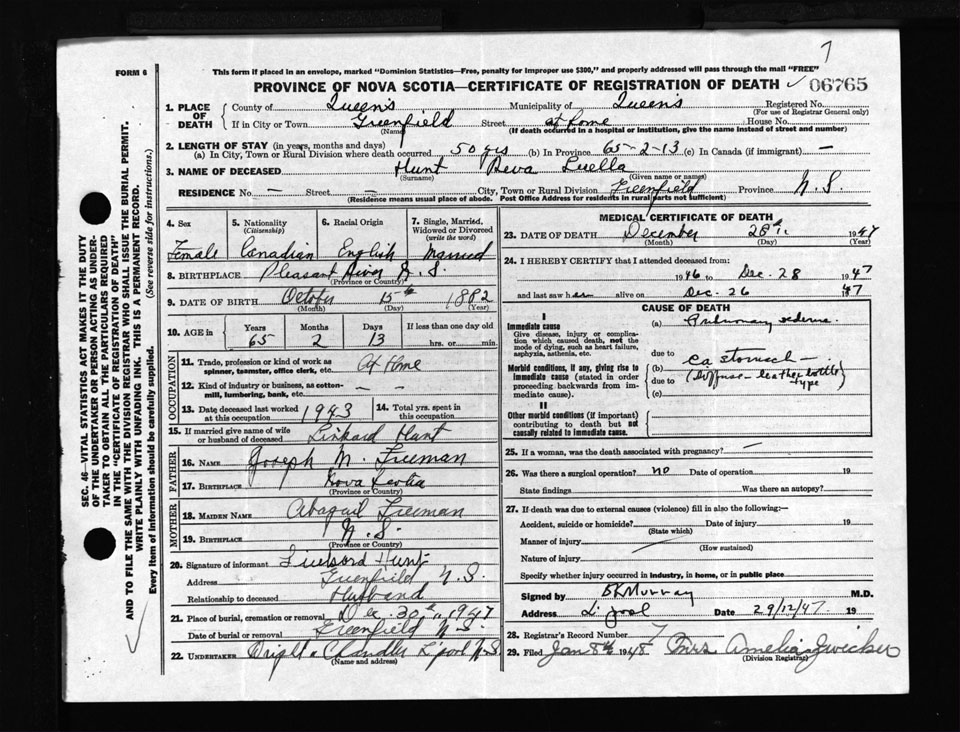 7
FORM 6
This form if placed in an envelope, marked "Dominion Statistics—Free, penalty for improper use $300," and properly addressed will pass through the mail "FREE"
PROVINCE OF NOVA SCOTIA—CERTIFICATE OF REGISTRATION OF DEATH ✓ 06765
1. PLACE OF DEATH
County of Queen's Municipality of Queen's Registered No.
(For use of Registrar General only)
If in City or Town Greenfield Street at home House No.
(Name) (If death occurred in a hospital or institution, give the name instead of street and number)
2. LENGTH OF STAY (in years, months and days)
(a) In City, Town or Rural Division where death occurred 50 yrs (b) In Province 65-2-13 (c) In Canada (if immigrant) —
3. NAME OF DECEASED Hunt Reva Luella
(Surname) (Given name or names)
RESIDENCE No — Street — City, Town or Rural Division Greenfield Province N.S.
(Residence means usual place of abode. Post Office Address for residents in rural parts not sufficient)
4. Sex
Female
5. Nationality
(Citizenship)
Canadian
6. Racial Origin
English
7. Single, Married, Widowed or Divorced
(write the word)
Married
8. BIRTHPLACE Pleasant River N.S.
(Province or Country)
9. DATE OF BIRTH October 15th 1882
(Month) (Day) (Year)
10. AGE in
Years Months Days If less than one day old
65 2 13 hrs. or min.
OCCUPATION
11. Trade, profession or kind of work as spinner, teamster, office clerk, etc. At Home
12. Kind of industry or business, as cotton-mill, lumbering, bank, etc. — —
13. Date deceased last worked at this occupation 1943
14. Total yrs. spent in this occupation
15. If married give name of wife or husband of deceased Linkard Hunt
FATHER
16. NAME Joseph M. Freeman
17. BIRTHPLACE Nova Scotia
(Province or Country)
MOTHER
18. MAIDEN NAME Abagail Freeman
19. BIRTHPLACE N.S.
(Province or Country)
20. Signature of informant Hunt
Address Greenfield N.S.
Relationship to deceased Husband
21. Place of burial, cremation or removal Dec. 30th, 1947
Date of burial or removal Greenfield N.S.
22. UNDERTAKER Chandler L'pool N.S.
(Name and address)
MEDICAL CERTIFICATE OF DEATH
23. DATE OF DEATH December 28th 1947
(Month) (Day) (Year)
24. I HEREBY CERTIFY that I attended deceased from:
1946 to Dec. 28 1947
and last saw her alive on Dec. 26 1947
CAUSE OF DEATH
I
Immediate cause
Give disease, injury or complication which caused death, not the mode of dying, such as heart failure, asphyxia, asthenia, etc.
(a) Pulmonary edema
due to
Morbid conditions, if any, giving rise to immediate cause (stated in order proceeding backwards from immediate cause).
(b) Ca stomach —
due to (diffuse - leather bottle type)
(c)
II
Other morbid conditions (if important) contributing to death but not causally related to immediate cause.
25. If a woman, was the death associated with pregnancy? —
26. Was there a surgical operation? no Date of operation 19
State findings Was there an autopsy?
27. If death was due to external causes (violence) fill in also the following:—
Accident, suicide or homicide? Date of injury 19
(State which)
Manner of injury
(How sustained)
Nature of injury
Specify whether injury occurred in industry, in home, or in public place
Signed by Murray M.D.
Address L'pool Date 29/12/47 19
28. Registrar's Record Number 7
29. Filed Jan 8th 1948 Mrs Amelia Zwicker
(Division Registrar)
SEC. 46—VITAL STATISTICS ACT MAKES IT THE DUTY
OF THE UNDERTAKER OR PERSON ACTING AS UNDER-
TAKER TO OBTAIN ALL THE PARTICULARS REQUIRED
IN THE "CERTIFICATE OF REGISTRATION OF DEATH"
AND TO FILE THE SAME WITH THE DIVISION REGISTRAR WHO SHALL ISSUE THE BURIAL PERMIT.
WRITE PLAINLY WITH UNFADING INK. THIS IS A PERMANENT RECORD.
Every item of information should be carefully supplied. (See reverse side for instructions.)